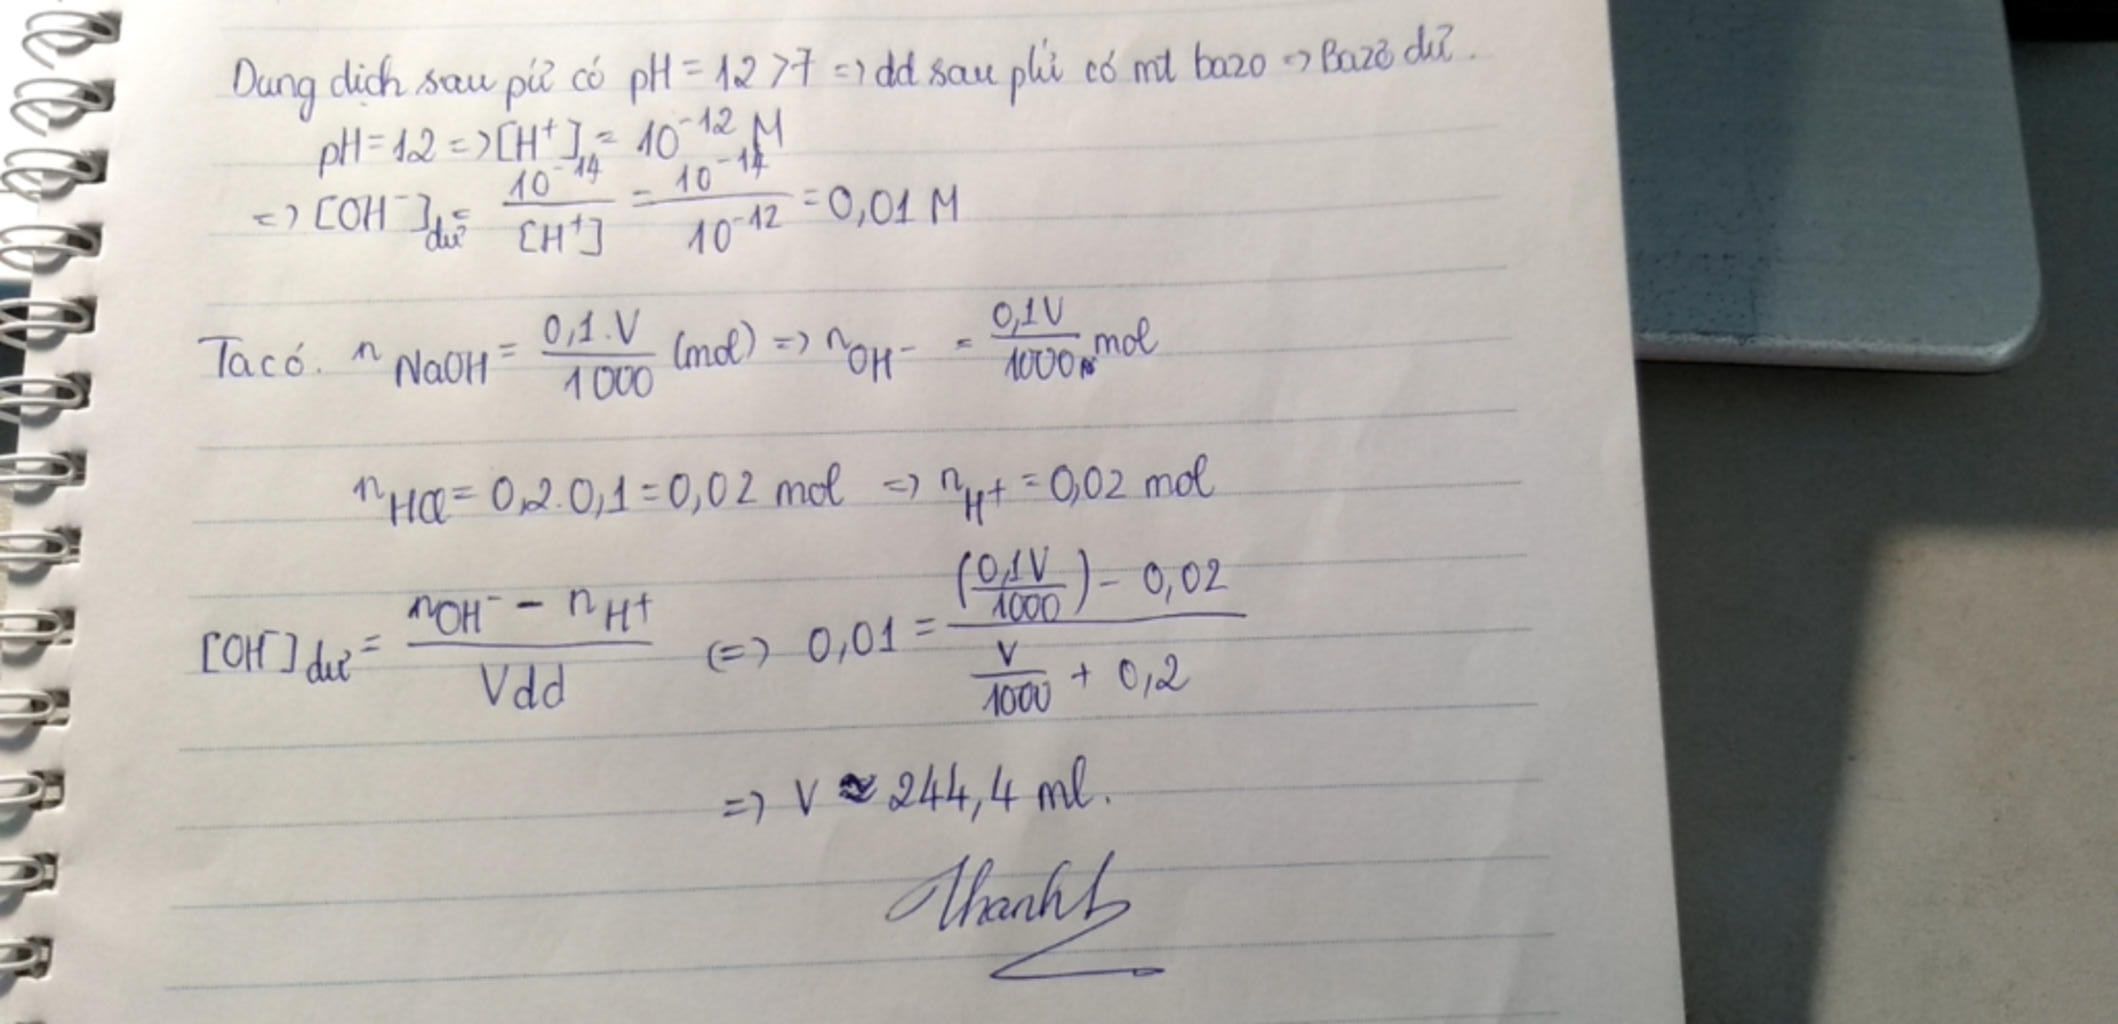 Dung dịch sau pứ có pH = 12 > 7 => dd sau phứ có mt bazo => Bazơ dư.
pH = 12 => [H⁺] = 10⁻¹² M
=> [OH⁻]dư = 10⁻¹⁴/[H⁺] = 10⁻¹⁴/10⁻¹² = 0,01 M
Ta có. n NaOH = 0,1.V/1000 (mol) => n OH⁻ = 0,1V/1000 mol
n HCl = 0,2.0,1 = 0,02 mol => n H⁺ = 0,02 mol
[OH⁻]dư = (n OH⁻ - n H⁺)/Vdd <=> 0,01 = ((0,1V/1000) - 0,02)/(V/1000 + 0,2)
=> V ≈ 244,4 ml.